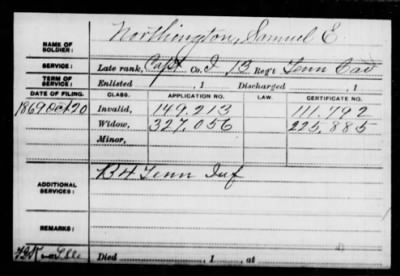 NAME OF SOLDIER: Northington, Samuel E
SERVICE: Late rank, Capt Co. I 13 Reg't Tenn Cav
TERM OF SERVICE: Enlisted , 1 Discharged , 1
DATE OF FILING. CLASS. APPLICATION NO. LAW. CERTIFICATE NO.
1869 Oct 20 Invalid, 149,213 111,792
Widow, 327,056 225,885
Minor,
ADDITIONAL SERVICES: B 4 Tenn Inf
REMARKS:
Died , 1 , at